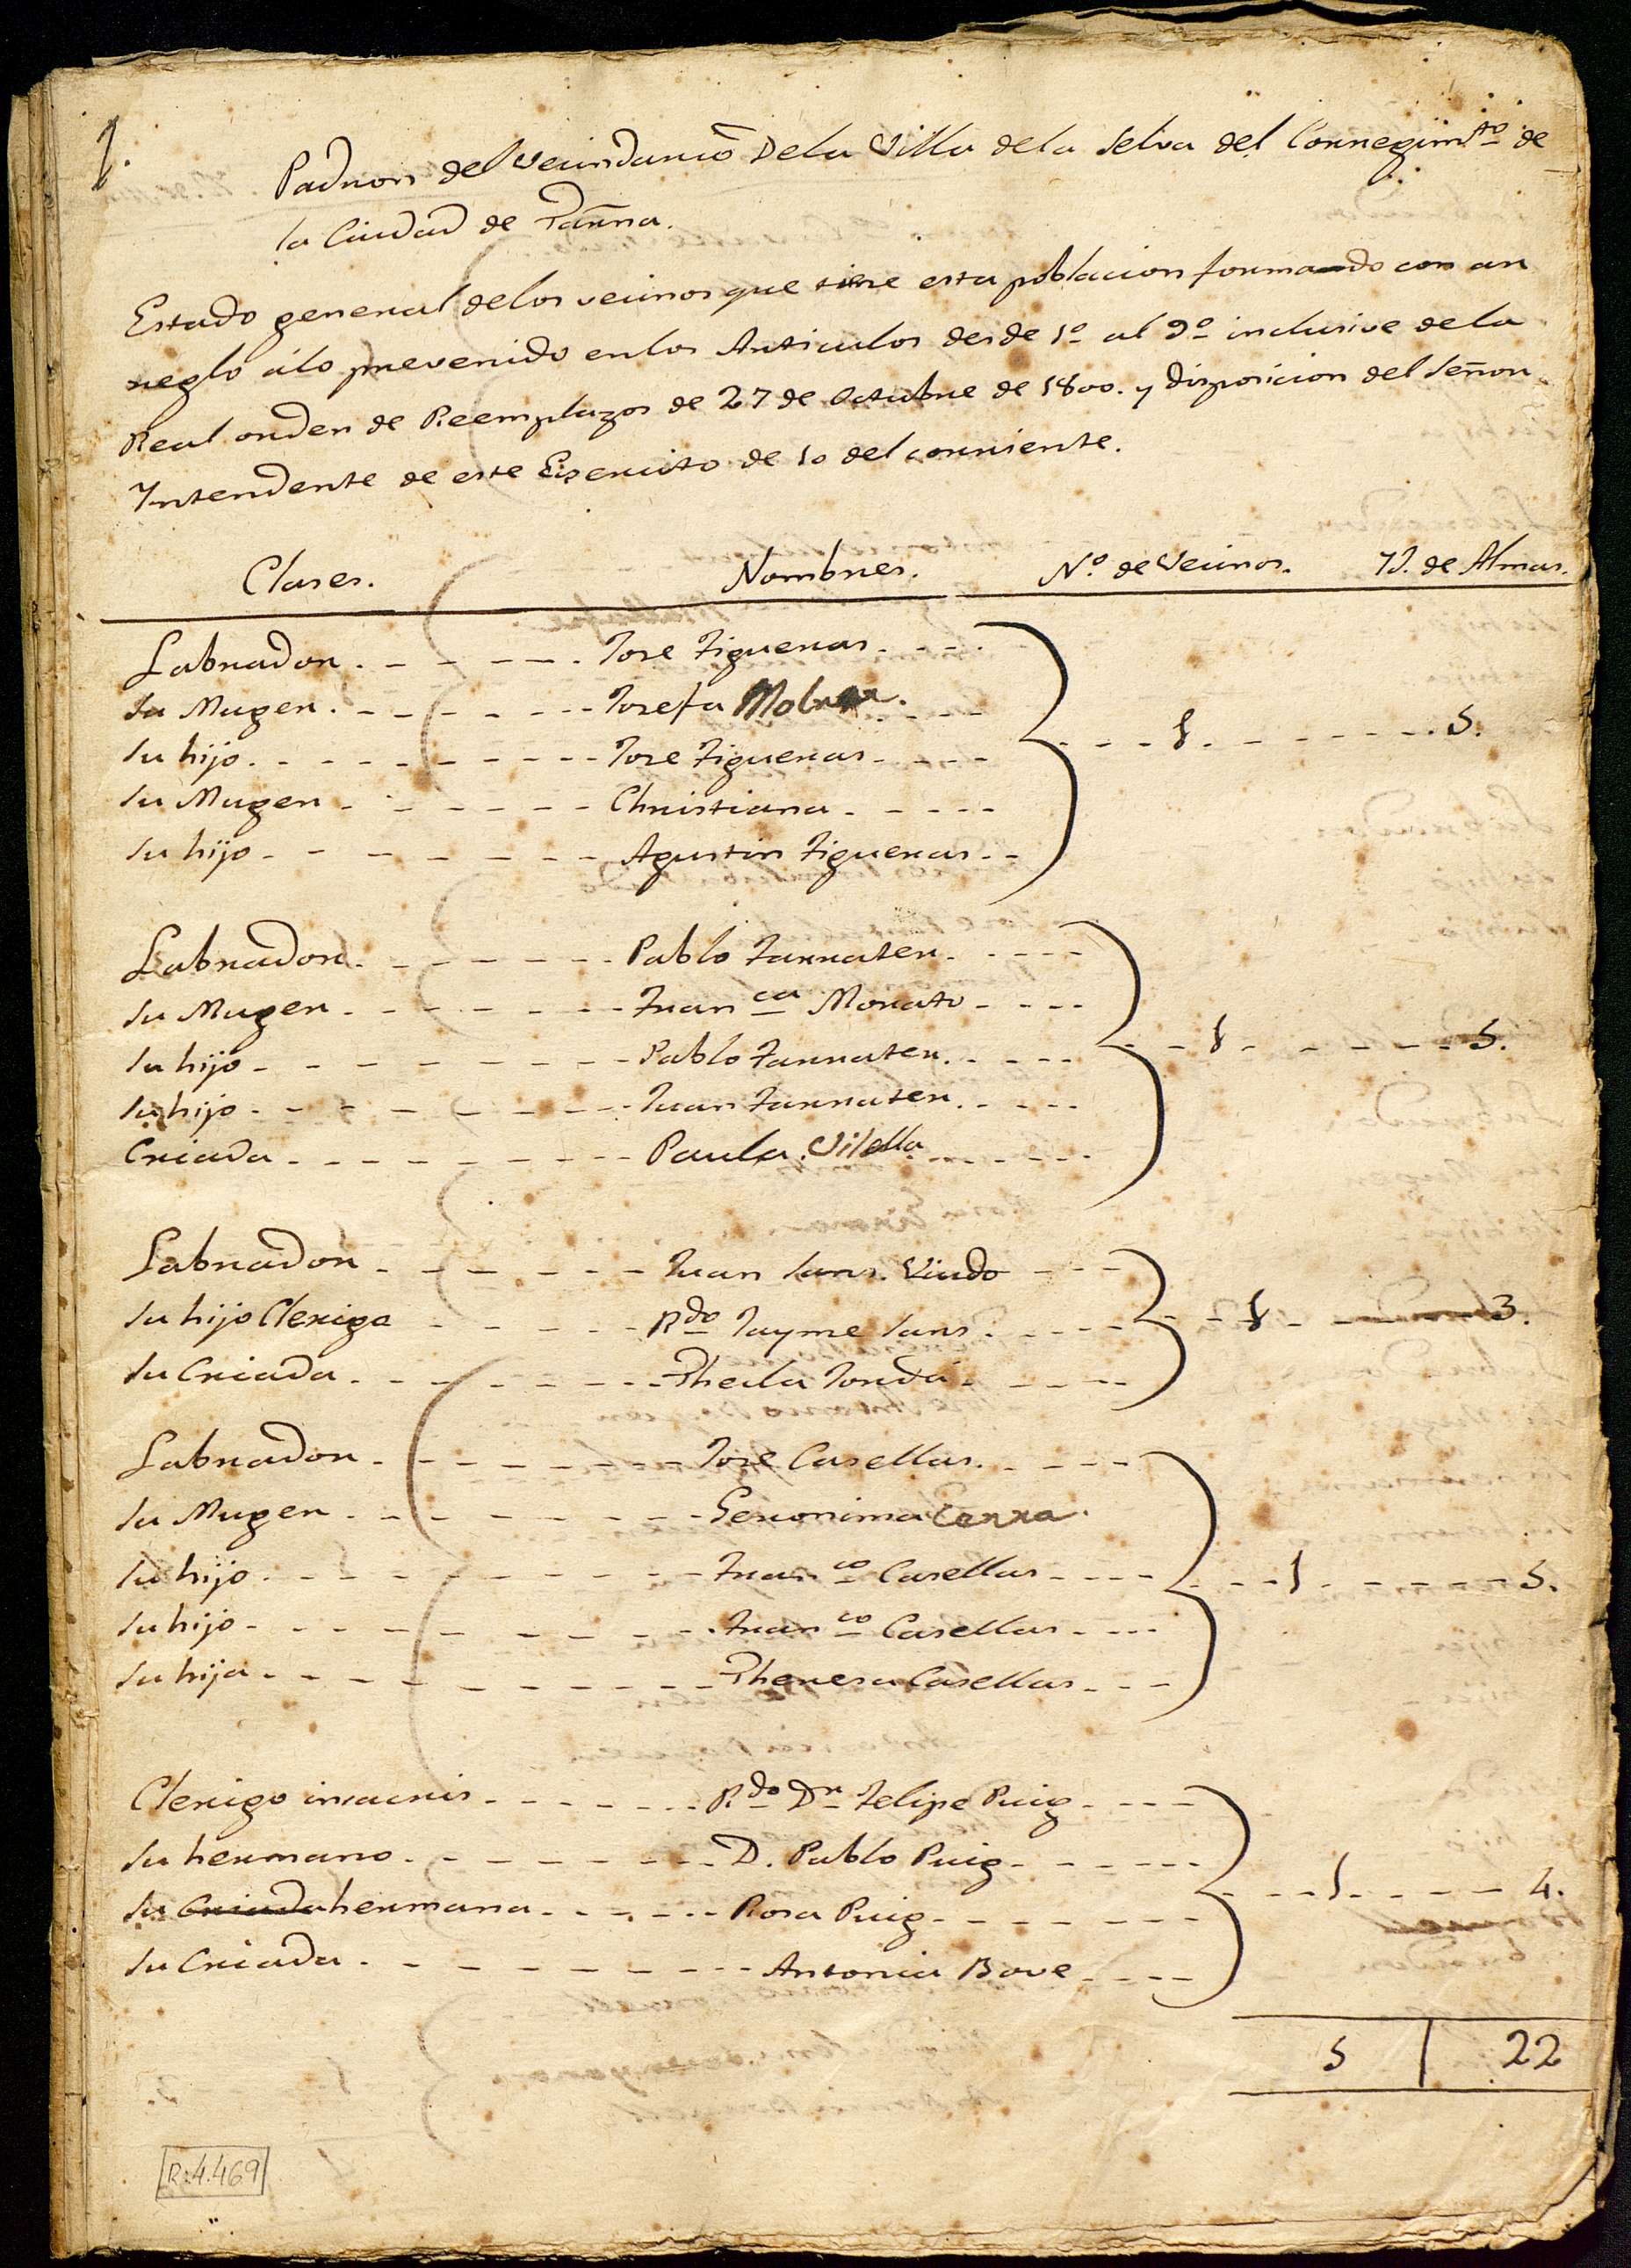 1.
Padron del Vecindario De la Villa de la Selva del Corregim.to de
la Ciudad de Tarrna.
Estado general de los vecinos que tiene esta poblacion formando con ar
reglo á lo prevenido en los Articulos desde 1º al 9º inclusive de la
Real orden de Reemplazos de 27 de Octubre de 1800. y disposicion del Señor
Intendente de este Exercito de 10 del corriente.
Clases. Nombres. Nº de Vecinos. N. de Almas.
Labrador. Jose Figueras.
Su Muger. Josefa
Su hijo. Jose Figueras. 1. 5.
Su Muger Christiana
Su hijo Agustin Figueras.
Labrador. Pablo Farrater.
Su Muger Fran.ca Morato
Su hijo Pablo Farrater. 1. 5.
Su hijo Juan Farrater.
Criada Paula Vilella
Labrador Juan Sans. Viudo
Su hijo Clerigo Rdo Jayme Sans. 1. 3.
Su Criada. Thecla Jordá
Labrador Jose Casellas.
Su Muger Geronima Terra.
Su hijo Fran.co Casellas 1. 5.
Su hijo Fran.co Casellas
Su hija Theresa Casellas
Clerigo in sacris Rdo Dr Felipe Puig
Su hermano. D. Pablo Puig
Su Criada hermana Rosa Puig 1. 4.
Su Criada. Antonia Bove
5 | 22
R.4.469